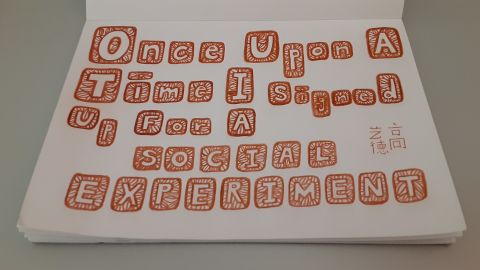 Once Upon A
Time I Signed
Up For A
SOCIAL
EXPERIMENT
高
艺德